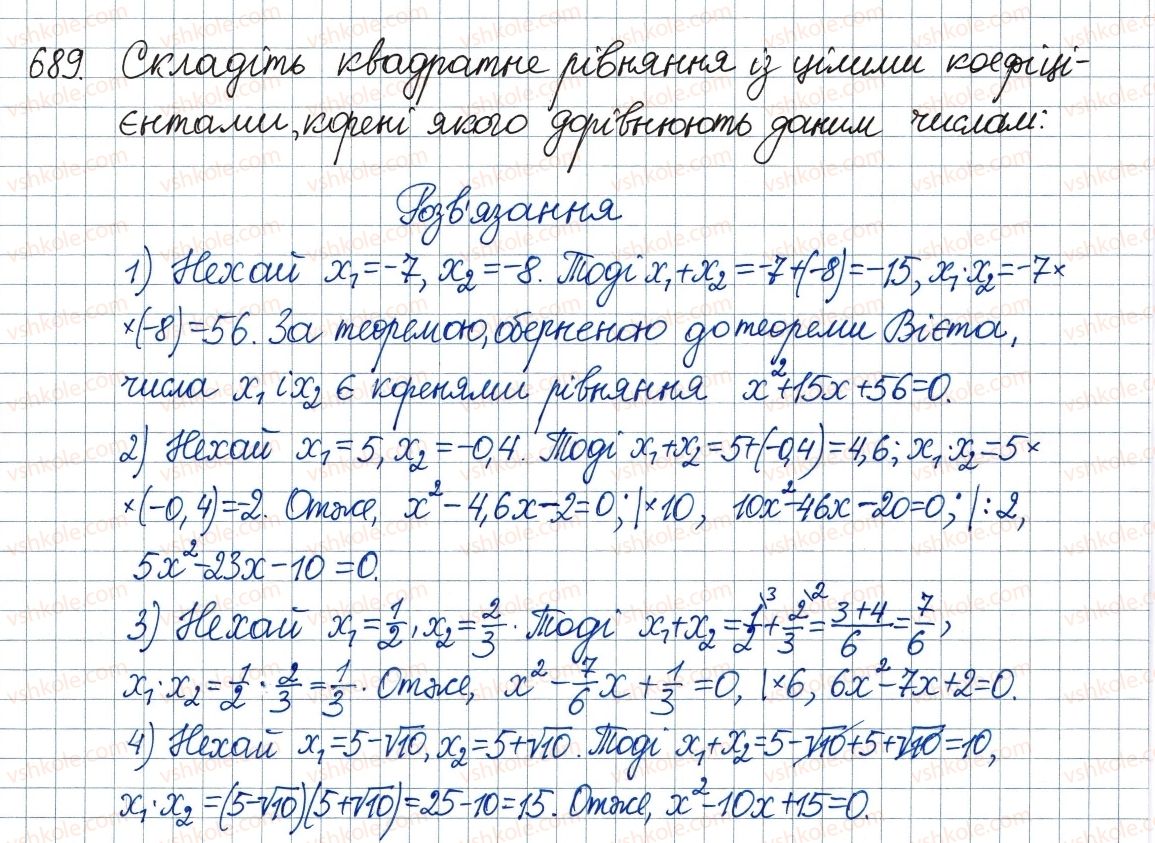 689. Складіть квадратне рівняння із цілими коефіці-
єнтами, корені якого дорівнюють даним числам:
Розв'язання
1) Нехай x₁ = -7, x₂ = -8. Тоді x₁ + x₂ = -7 + (-8) = -15, x₁ · x₂ = -7 ×
× (-8) = 56. За теоремою, оберненою до теореми Вієта,
числа x₁ і x₂ є коренями рівняння x² + 15x + 56 = 0.
2) Нехай x₁ = 5, x₂ = -0,4. Тоді x₁ + x₂ = 5 + (-0,4) = 4,6; x₁ · x₂ = 5 ×
× (-0,4) = -2. Отже, x² - 4,6x - 2 = 0; | × 10, 10x² - 46x - 20 = 0; | : 2,
5x² - 23x - 10 = 0.
3) Нехай x₁ = 1/2, x₂ = 2/3. Тоді x₁ + x₂ = 1/2 \³ + 2/3 \² = (3+4)/6 = 7/6,
x₁ · x₂ = 1/2 · 2/3 = 1/3. Отже, x² - 7/6 x + 1/3 = 0, | × 6, 6x² - 7x + 2 = 0.
4) Нехай x₁ = 5 - √10, x₂ = 5 + √10. Тоді x₁ + x₂ = 5 - √10 + 5 + √10 = 10,
x₁ · x₂ = (5 - √10)(5 + √10) = 25 - 10 = 15. Отже, x² - 10x + 15 = 0.
vshkole.com